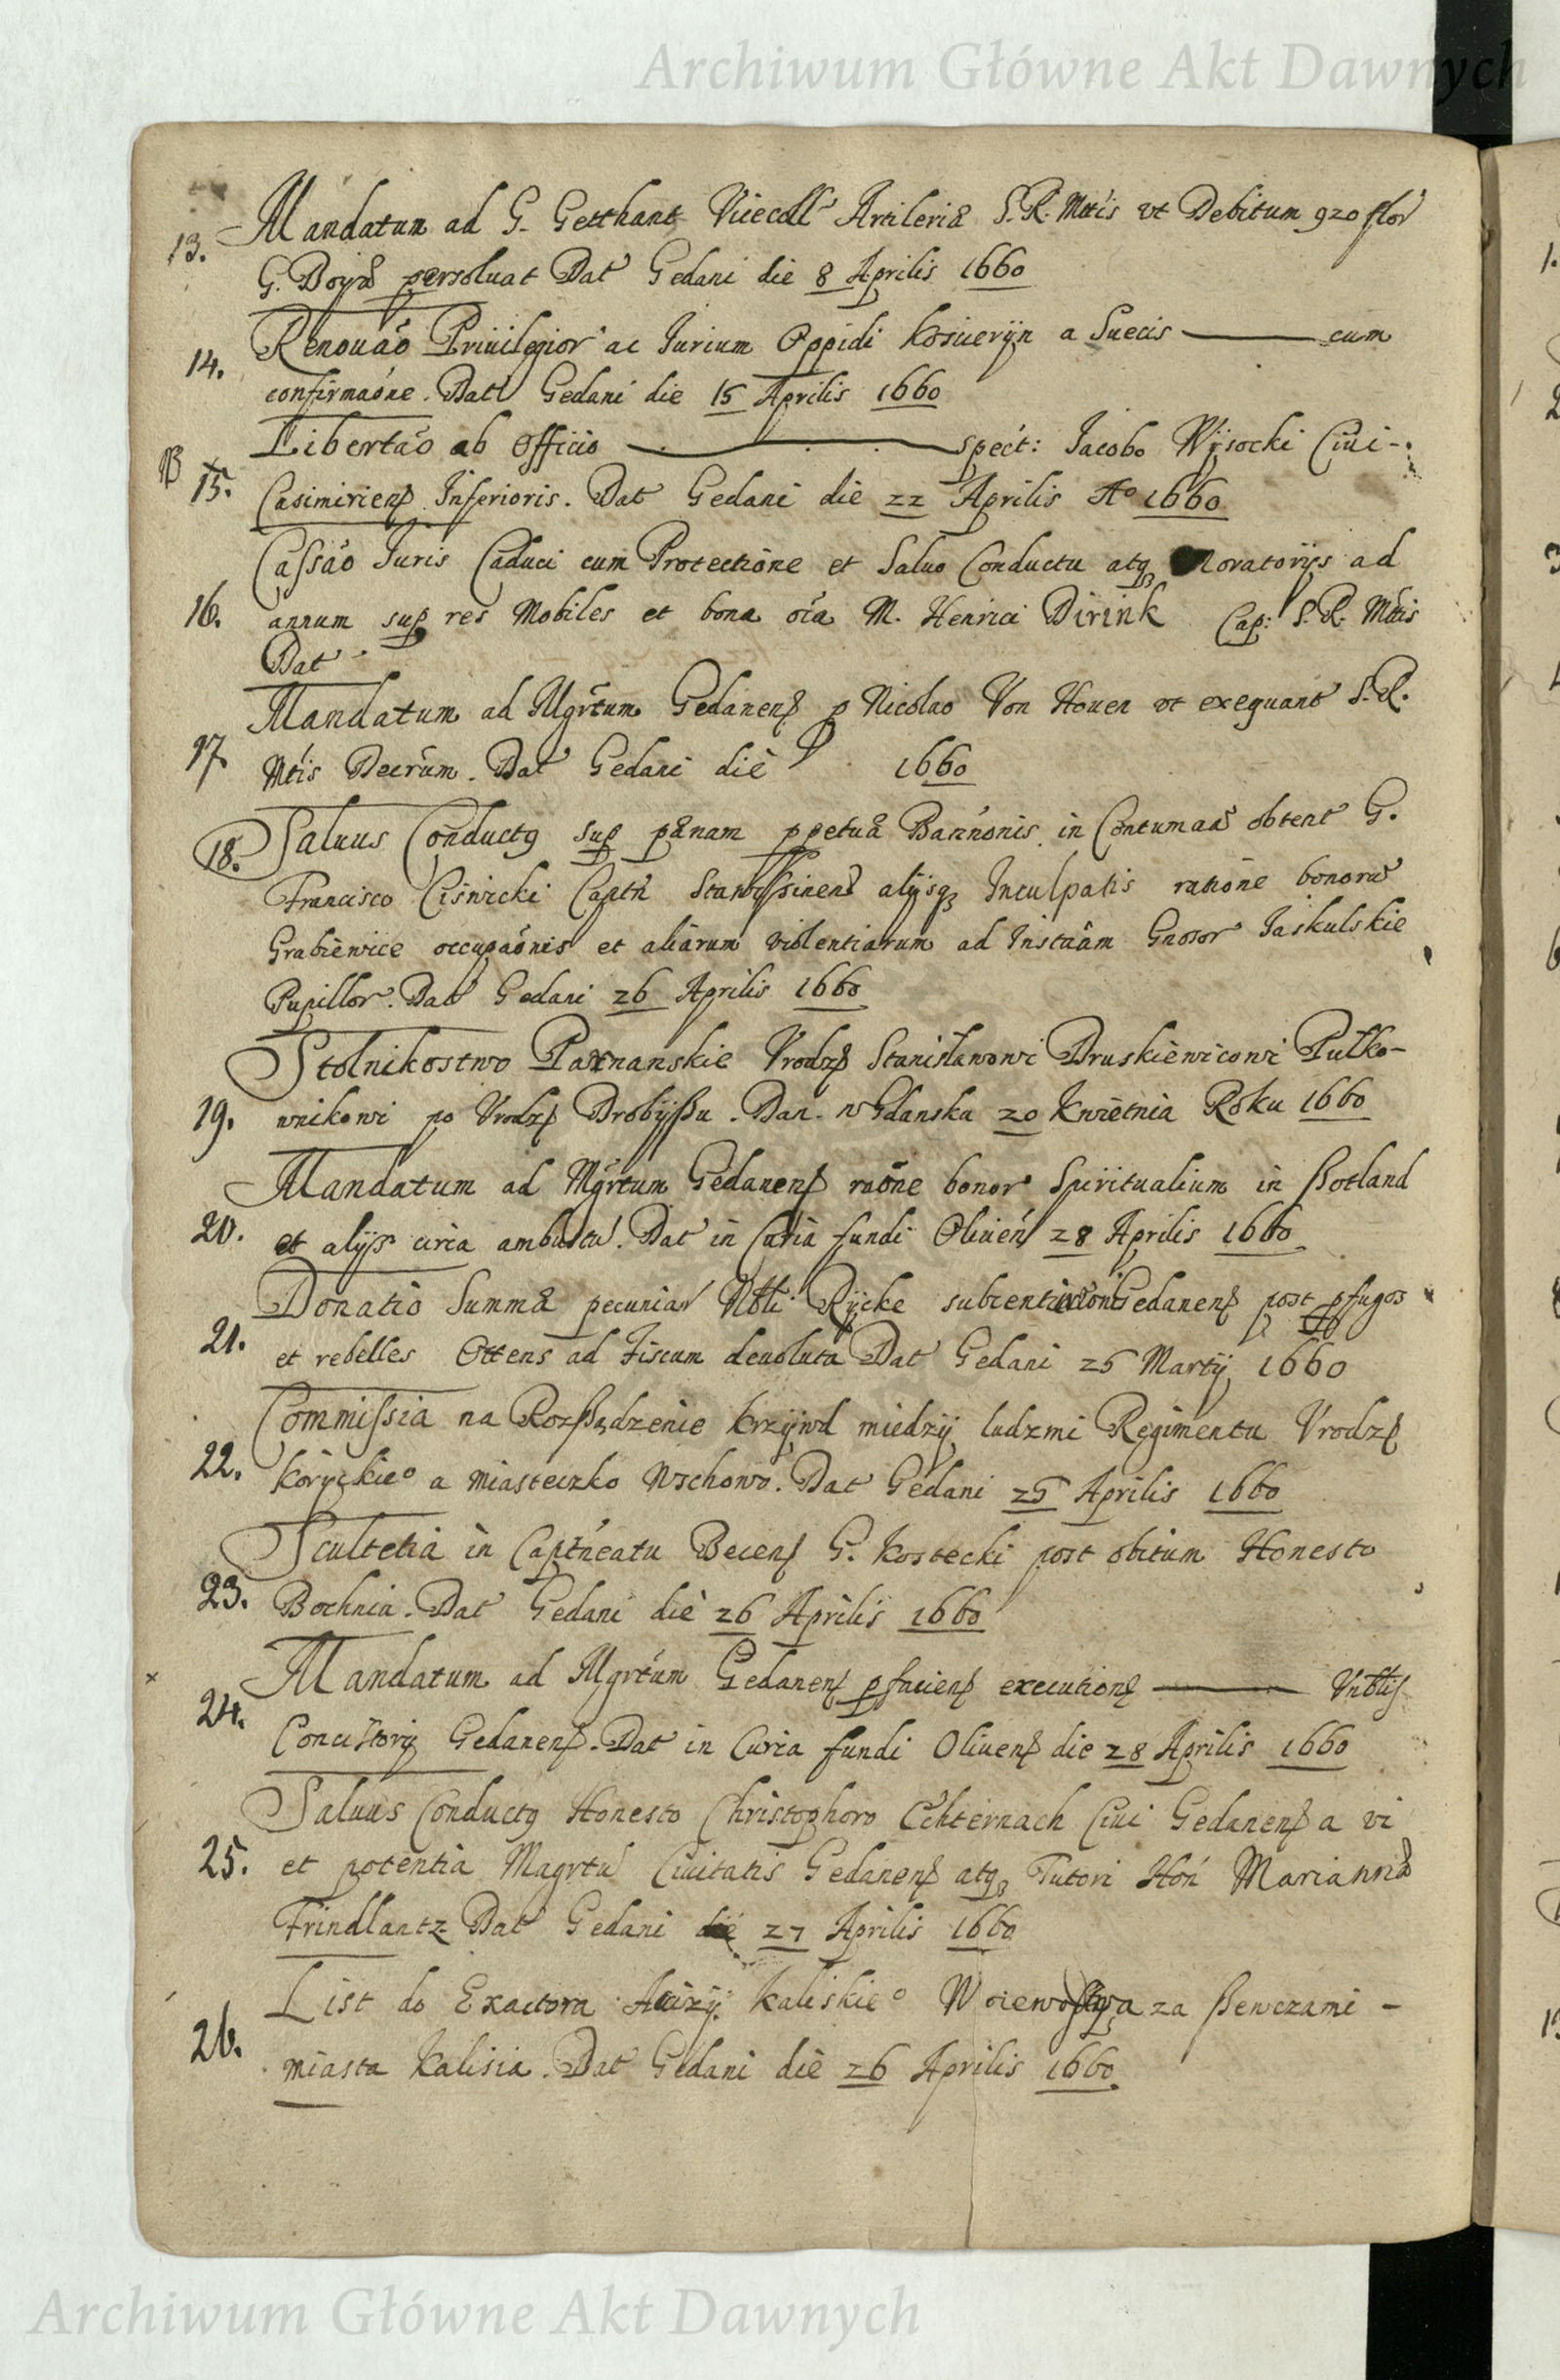 Archiwum Główne Akt Dawnych
13. Mandatum ad G. Getthant Vicecoll Artileriæ S. R. Mtis vt Debitum 920 flor
G. Boyæ persoluat Dat Gedani die 8 Aprilis 1660
14. Renouāo Priuilegior ac Iurium Oppidi Koscieryn a Suecis ——— cum
confirmaōne. Datt Gedani die 15 Aprilis 1660
15. Libertāo ab Officio ——— spect: Iacobo Wysocki Ciui-
Casimirienß Inferioris. Dat Gedani die 22 Aprilis Ao 1660
Cassāo Iuris Caduci cum Protectione et Saluo Conductu atq Moratorijs ad
16. annum sup res Mobiles et bona oīa M. Henrici Dirink Cap: S. R. Mtis
Dat
Mandatum ad Mgrtum Gedanenß p Nicolao Von Houen vt exequant S. R.
17. Mtis Decrum. Dat Gedani die 1660
18. Saluus Conductq sup pænam ppetuæ Bannonis in Contumaa obtent G.
Francisco Ciświcki Captn alijsq Inculpatis ratione bonorū
Grabiewice occupaōnis et aliarum violentiarum ad Instnām Gnosor Iaskulskie
Pupillor. Dat Gedani 26 Aprilis 1660
Stolnikostwo Parnanskie Vrodzß Stanisławowi Druskiewicowi Pułko-
19. wnikowi po Vrodzß Drobyßu. Dan. w Gdansku 20 Kwietnia Roku 1660
Mandatum ad Mgrtum Gedanenß raōne bonor Spiritualium in ßotland
20. et alijs circa ambustu. Dat in Curia fundi Oliuenß 28 Aprilis 1660
Donatio Summæ pecuniar Nbli Rycke Gedanenß post pfugos
21. et rebelles Ottens ad Fiscum deuoluta Dat Gedani 25 Martij 1660
Commissia na Rozsądzenie krzywd miedzy ludzmi Regimentu Vrodzß
22. Koryckieo a miasteczko Wschowo. Dat Gedani 25 Aprilis 1660
Scultetia in Captneatu Becenß G. Kostecki post obitum Honesto
23. Bochnia. Dat Gedani die 26 Aprilis 1660
Mandatum ad Mgrtum Gedanenß p facienß executionß ——— Vnblis
24. Concistorij Gedanenß. Dat in Curia fundi Oliuenß die 28 Aprilis 1660
Saluus Conductq Honesto Christophoro Echternach Ciui Gedanenß a vi
25. et potentia Magrtu Ciuitatis Gedanenß atq Tutori Hon Mariannæ
Frindlantz Dat Gedani die 27 Aprilis 1660
List do Exactora Aczyzy Kaliskieo Woiewostwa za ßewczami -
26. miasta Kalisia. Dat Gedani die 26 Aprilis 1660
Archiwum Główne Akt Dawnych